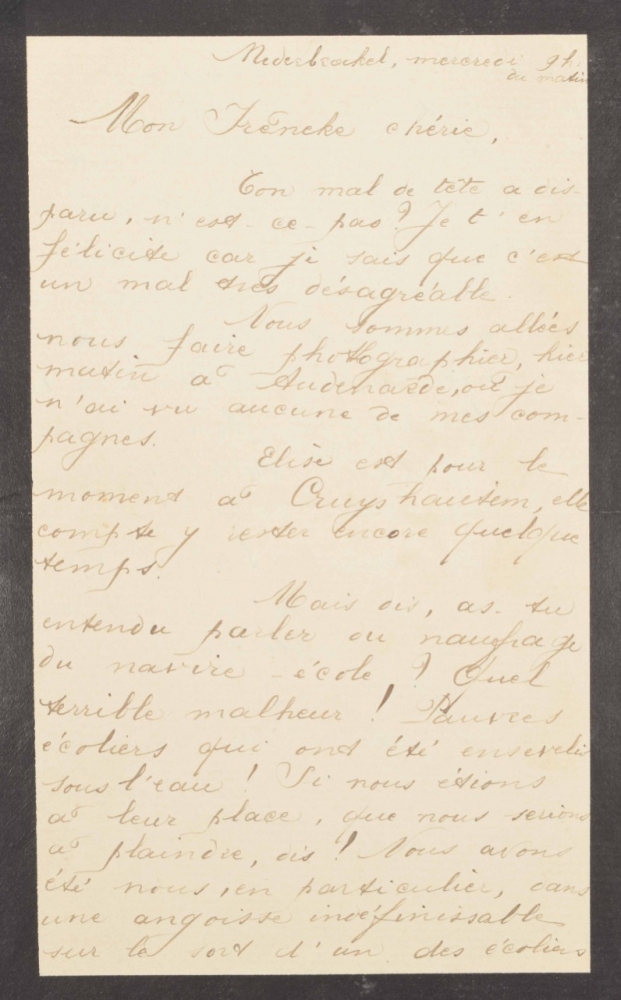 Nederbrakel, mercredi 9 h.
du matin
Mon Irèneke chérie,
Ton mal de tête a dis-
paru, n'est-ce-pas? Je t'en
félicite car je sais que c'est
un mal très désagréable.
Nous sommes allées
nous faire photographier, hier
matin à Audenaerde, où je
n'ai vu aucune de mes com-
pagnes.
Elise est pour le
moment à Cruyshautem, elle
compte y rester encore quelque
temps.
Mais dis, as-tu
entendu parler du naufrage
du navire-école? Quel
terrible malheur! Pauvres
écoliers qui ont été ensevelis
sous l'eau! Si nous étions
à leur place, que nous serions
à plaindre, dis! Nous avons
été nous, en particulier, dans
une angoisse indéfinissable
sur le sort d'un des écoliers